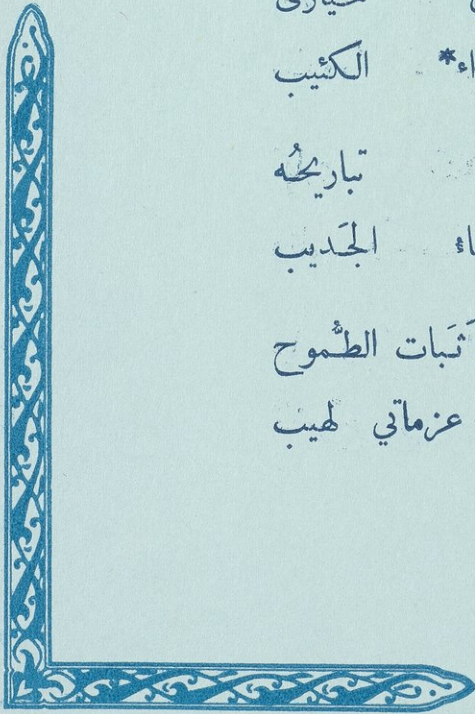 الكئيب
تباريحُه
الجَديب
ثَبات الطُّموح
عزماتي لهيب